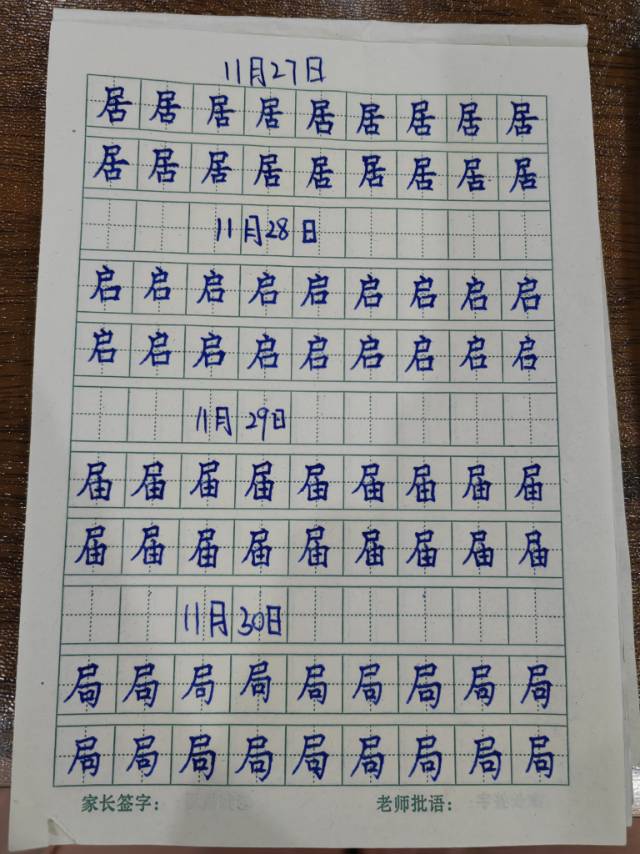 11月27日
居居居居居居居居居
居居居居居居居居居
11月28日
启启启启启启启启启
启启启启启启启启启
11月29日
届届届届届届届届届
届届届届届届届届届
11月30日
局局局局局局局局局
局局局局局局局局局
家长签字： 老师批语：